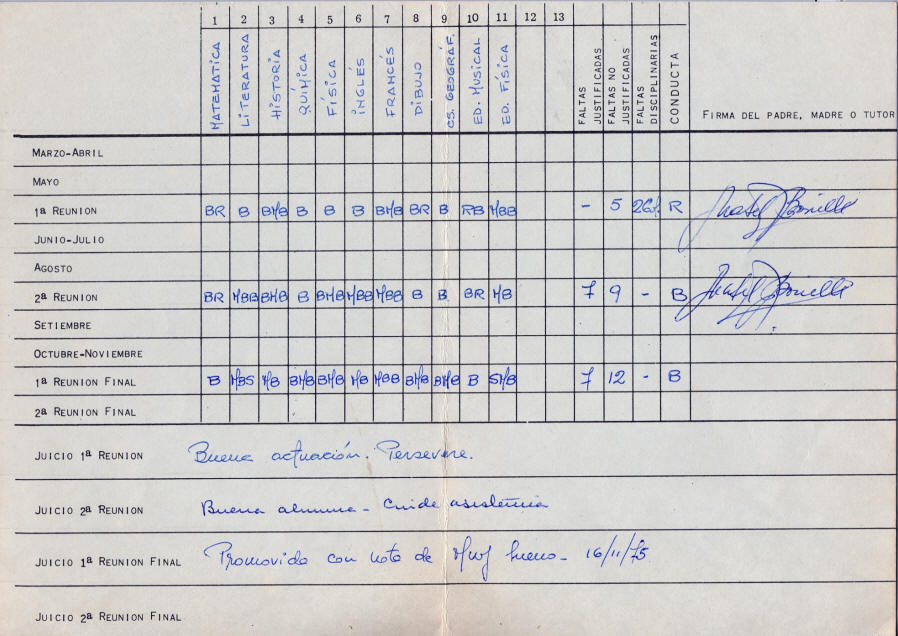 1 2 3 4 5 6 7 8 9 10 11 12 13
MATEMATICA LITERATURA HISTORIA QUÍMICA FÍSICA INGLÉS FRANCÉS DIBUJO CS. GEOGRÁF. ED. MUSICAL ED. FÍSICA FALTAS JUSTIFICADAS FALTAS NO JUSTIFICADAS FALTAS DISCIPLINARIAS CONDUCTA FIRMA DEL PADRE, MADRE O TUTOR
MARZO-ABRIL
MAYO
1ª REUNION BR B BMB B B B BMB BR B RB MBB - 5 R
JUNIO-JULIO
AGOSTO
2ª REUNION BR MBB BMB B BMB MBB MBB B B BR MB 7 9 - B
SETIEMBRE
OCTUBRE-NOVIEMBRE
1ª REUNION FINAL B MBS MB BMB BMB MB MBB BMB BMB B SMB 7 12 - B
2ª REUNION FINAL
JUICIO 1ª REUNION Buena actuación. Persevere.
JUICIO 2ª REUNION Buena alumna - Cuide asistencia
JUICIO 1ª REUNION FINAL Promovida con nota de Muy bueno - 16/11/75
JUICIO 2ª REUNION FINAL